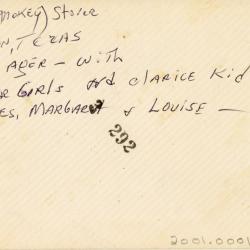 Smokey) Stover
N, TEXAS
AGER - WITH
R GIRLS and clarice Kid
ES, MARGARET & LOUISE —
292
2001.000